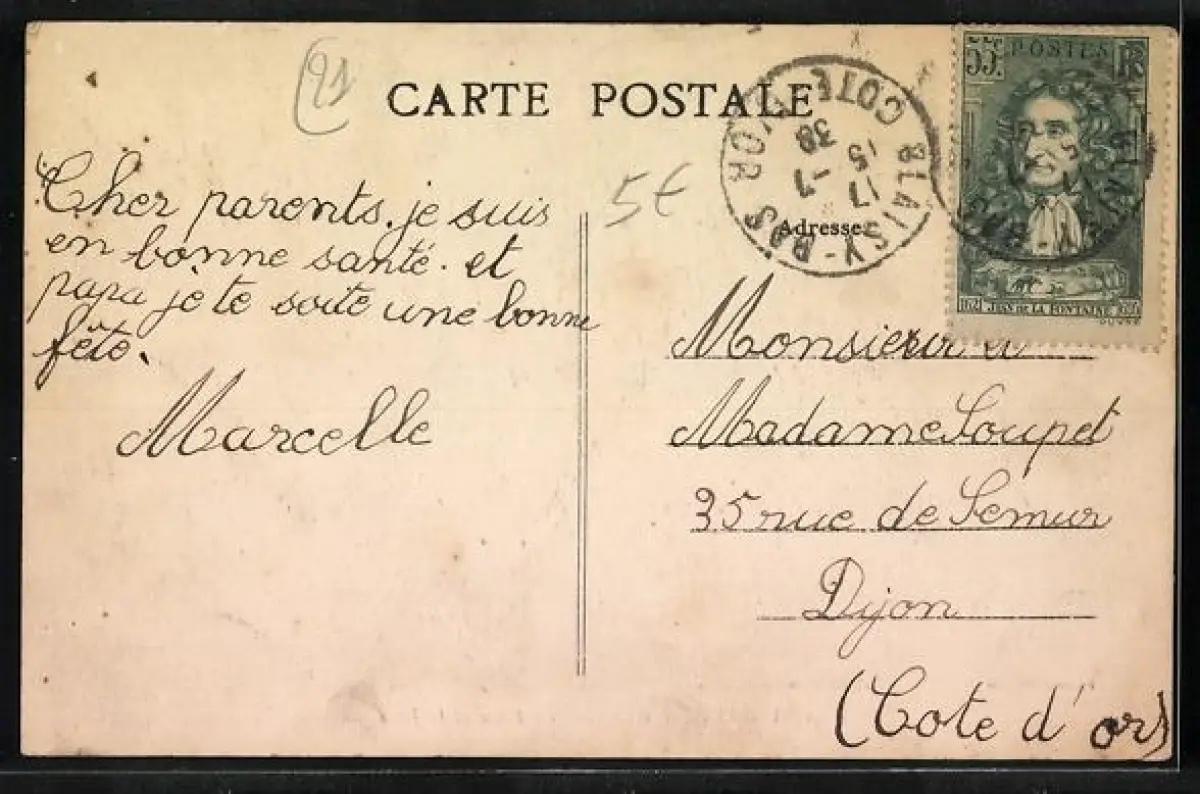 91
CARTE POSTALE
5€
Cher parents, je suis
en bonne santé. et
papa je te soite une bonne
fête.
Marcelle
BLAISY-BAS
COTE D'OR
17 15
-7
38
55c.
POSTES
RF
1621 JEAN DE LA FONTAINE 1695
Adresse
Monsieur et
Madame Soupet
35 rue de Semur
Dijon
(Cote d'or)